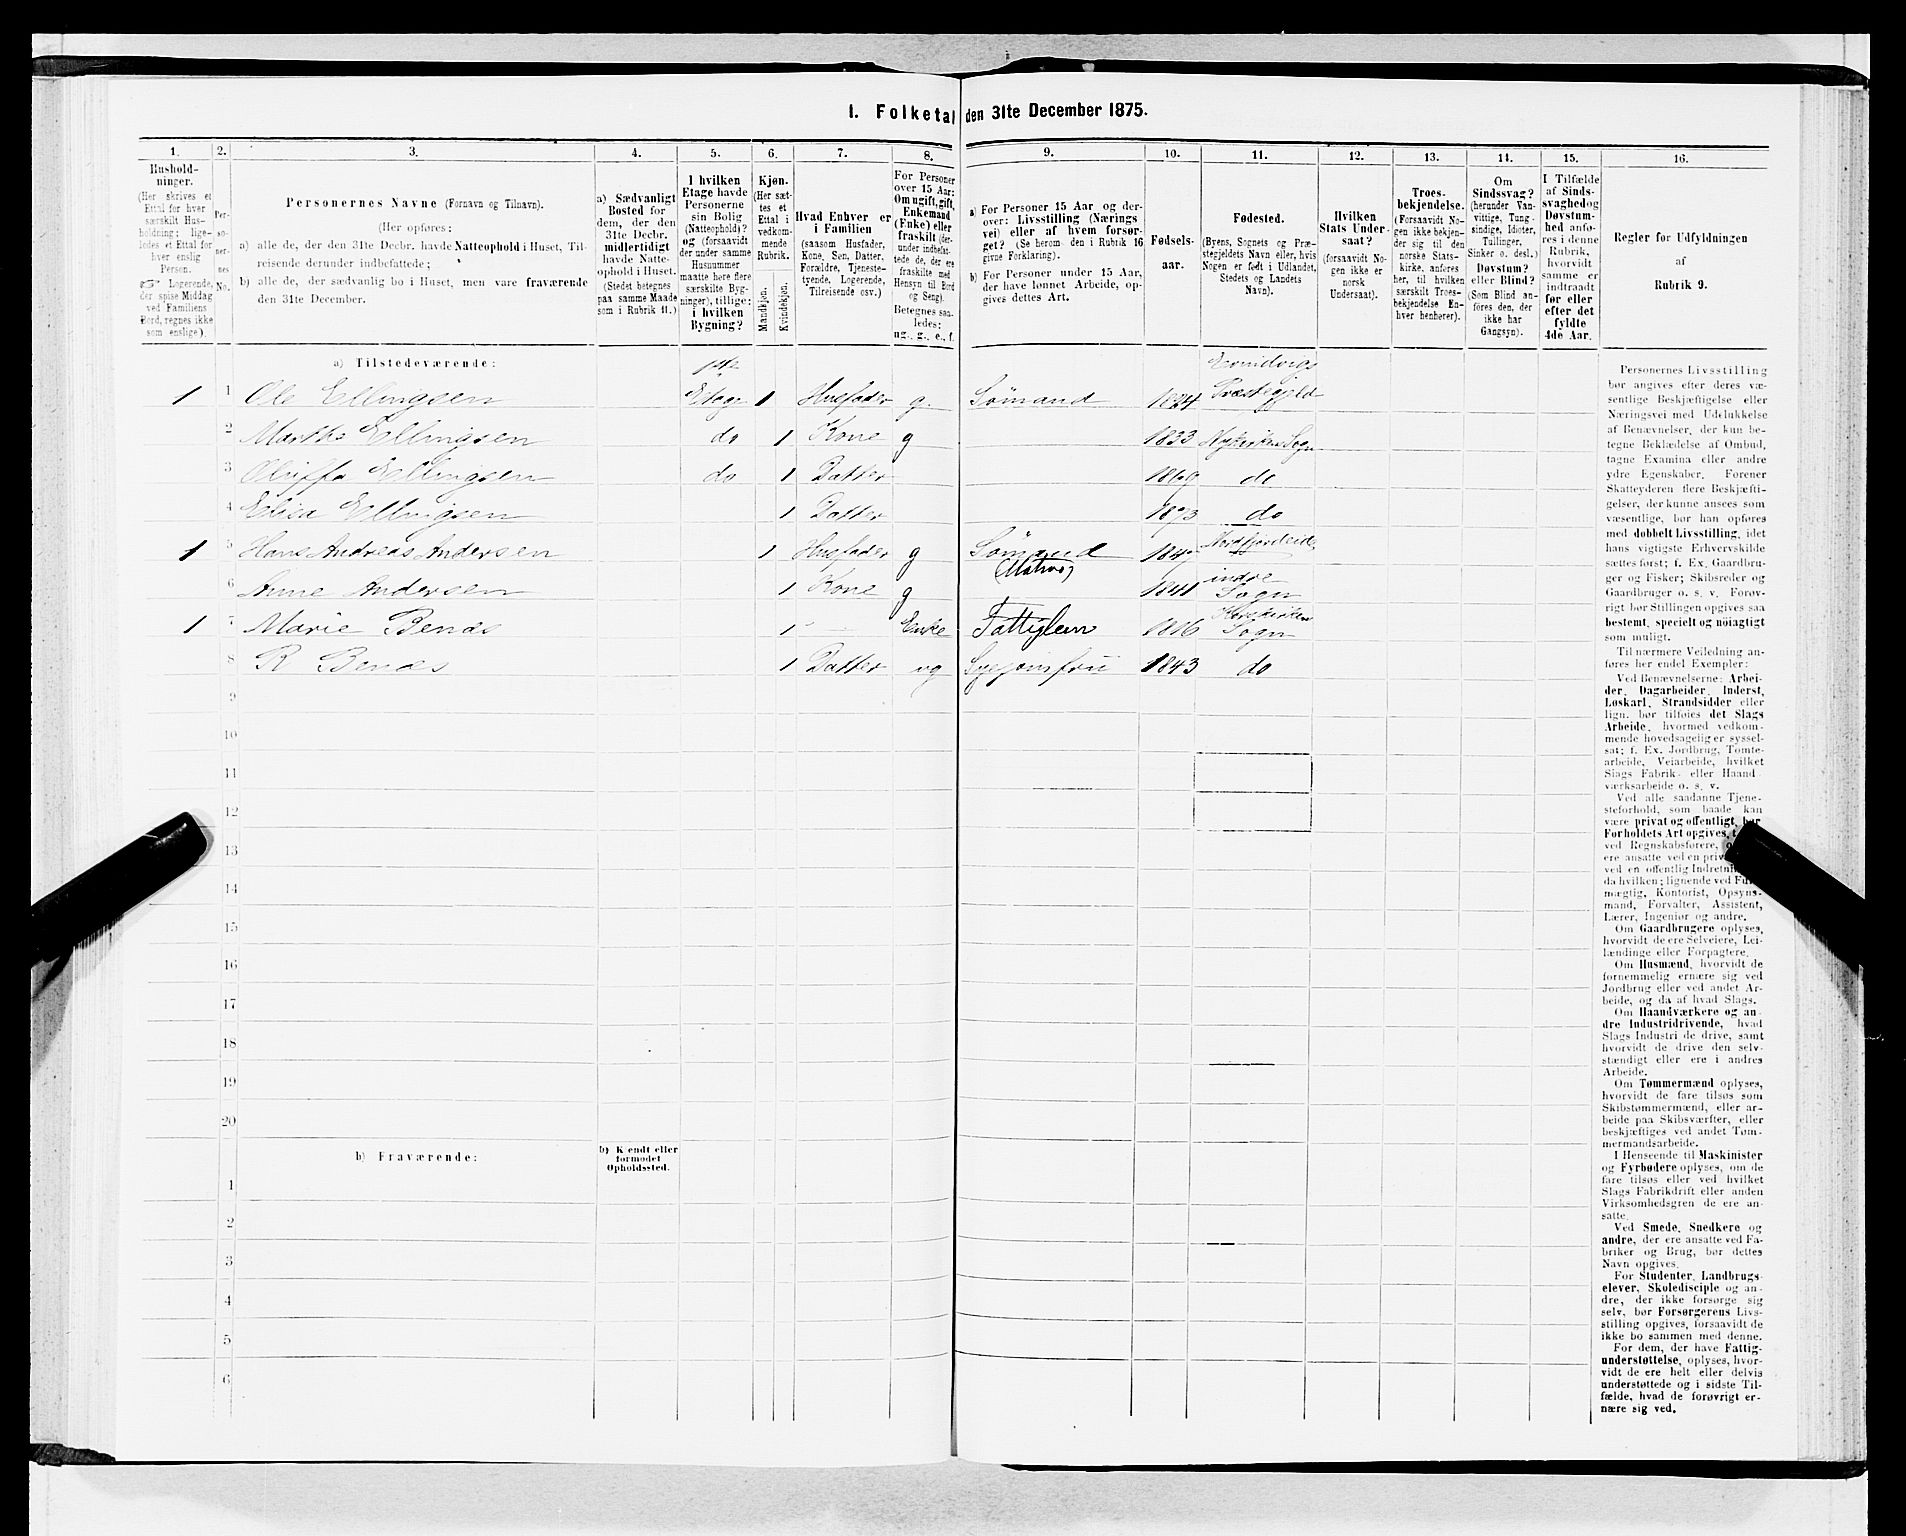 1. Folketal den 31te December 1875.
1.
2.
3.
4.
5.
6.
7.
8.
9.
10.
11.
12.
13.
14.
15.
16.
Hushold-
ninger.
(Her skrives et
Ettal for hver
særskilt Hus-
holdning; lige-
ledes et Ettal for
hver enslig
Person.
☞ Logerende,
der spise Middag
ved Familiens
Bord, regnes ikke
som enslige).
Per-
so-
ner-
nes
No.
Personernes Navne (Fornavn og Tilnavn).
(Her opføres:
a) alle de, der den 31te Decbr. havde Natteophold i Huset, Til-
reisende derunder indbefattede;
b) alle de, der sædvanlig bo i Huset, men vare fraværende
den 31te December.
a) Sædvanligt
Bosted for
dem, der den
31te Decbr.
midlertidigt
havde Natte-
ophold i Huset.
(Stedet betegnes
paa samme Maade
som i Rubrik 11.)
I hvilken
Etage havde
Personerne
sin Bolig
(Natteophold)?
og (forsaavidt
der under samme
Husnummer
maatte høre flere
særskilte Byg-
ninger), tillige:
i hvilken
Bygning?
Kjøn.
(Her sæt-
tes et
Ettal i
vedkom-
mende
Rubrik.
Mandkjøn.
Kvindekjøn.
Hvad Enhver er
i Familien
(saasom Husfader,
Kone, Søn, Datter,
Forældre, Tjeneste-
tyende, Logerende,
Tilreisende osv.)
For Personer
over 15 Aar:
Om ugift, gift,
Enkemand
(Enke) eller
fraskilt (der-
under indbefat-
tede de, der ere
fraskilte med
Hensyn til Bord
og Seng).
Betegnes saa-
ledes:
ug., g., e., f.
a) For Personer 15 Aar og der-
over: Livsstilling (Nærings
vei) eller af hvem forsør-
get? (Se herom den i Rubrik 16
givne Forklaring).
b) For Personer under 15 Aar,
der have lønnet Arbeide, op-
gives dettes Art.
Fødsels-
aar.
Fødested.
(Byens, Sognets og Præ-
stegjeldets Navn eller, hvis
Nogen er født i Udlandet,
Stedets og Landets
Navn).
Hvilken
Stats Under-
saat?
(forsaavidt No-
gen ikke er
norsk
Undersaat).
Troes-
bekjendelse.
(Forsaavidt No-
gen ikke bekjen-
der sig til den
norske Stats-
kirke, anføres
her, til hvilken
særskilt Troes-
bekjendelse En-
hver henhører).
Om
Sindssvag?
(herunder Van-
vittige, Tung-
sindige, Idioter,
Tullinger,
Sinker o. desl.)
Døvstum?
eller Blind?
(Som Blind an-
føres den, der
ikke har
Gangsyn).
I Tilfælde
af Sinds-
svaghed og
Døvstum-
hed anfø-
res i denne
Rubrik,
hvorvidt
samme er
indtraadt
før eller
efter det
fyldte
4de Aar.
Regler før Udfyldningen
af
Rubrik 9.
a) Tilstedeværende:
1 1 Ole Ellingsen Etage 1 Husfader g. Sømand 1824 Præstegjeld
2 Marthe Ellingsen do 1 Kone g 1833 Sogn
3 Ellingsen do 1 Datter 1869 do
4 Elisa Ellingsen 1 Datter 1873 do
1 5 Hans Andreas Andersen 1 Husfader g Sømand
(Matros)
6 Anne Andersen 1 Kone g 1841 indre
Sogn
1 7 Marie Bends 1 Enke 1816 Korskirken
Sogn
8 R Bends 1 Datter ug Syejomfru 1843 do
9
10
11
12
13
14
15
16
17
18
19
20
b) Fraværende:
b) Kjendt eller
formodet
Opholdssted.
1
2
3
4
5
6
Personernes Livsstilling
bør angives efter deres væ-
sentlige Beskjæftigelse eller
Næringsvei med Udelukkelse
af Benævnelser, der kun be-
tegne Beklædelse af Ombud,
tagne Examina eller andre
ydre Egenskaber. Forener
Skatteyderen flere Beskjæfti-
gelser, der kunne ansees som
væsentlige, bør han opføres
med dobbelt Livsstilling, idet
hans vigtigste Erhvervskilde
sættes først; f. Ex. Gaardbru-
ger og Fisker; Skibsreder og
Gaardbruger o. s. v. Forøv-
rigt bør Stillingen opgives saa
bestemt, specielt og nöiagtigt
som muligt.
Til nærmere Veiledning an-
føres her endel Exempler:
Ved Benævnelserne: Arbei-
der, Dagarbeider, Inderst,
Løskarl, Strandsidder eller
lign. bør tilføies det Slags
Arbeide, hvormed vedkom-
mende hovedsagelig er syssel-
sat; f. Ex. Jordbrug, Tomte-
arbeide, Veiarbeide, hvilket
Slags Fabrik- eller Haand-
værksarbeide o. s. v.
Ved alle saadanne Tjene-
steforhold, som baade kan
være privat og offentligt, bør
Forholdets Art opgives,
ved Regnskabsførere,
ere ansatte ved en
ved en offentlig
da hvilken; lignende ved Fuld-
mægtig, Kontorist, Opsyns-
mand, Forvalter, Assistent,
Lærer, Ingeniør og andre.
Om Gaardbrugere oplyses,
hvorvidt de ere Selveiere, Lei-
lændinge eller Forpagtere.
Om Husmænd, hvorvidt de
fornemmelig ernære sig ved
Jordbrug eller ved andet Ar-
beide, og da af hvad Slags.
Om Haandværkere og an-
dre Industridrivende, hvad
Slags Industri de drive, samt
hvorvidt de drive den selv-
stændigt eller ere i andres
Arbeide.
Om Tømmermænd oplyses,
hvorvidt de fare tilsøs som
Skibstømmermænd, eller ar-
beide paa Skibsværfter, eller
beskjæftiges ved andet Tøm-
mermandsarbeide.
I Henseende til Maskinister
og Fyrbødere oplyses, om de
fare tilsøs eller ved hvilket
Slags Fabrikdrift eller anden
Virksomhedsgren de ere an-
satte.
Ved Smede, Snedkere og
andre, der ere ansatte ved Fa-
briker og Brug, bør dettes
Navn opgives.
For Studenter, Landbrugs-
elever, Skoledisciple og an-
dre, der ikke forsørge sig
selv, bør Forsørgerens Livs-
stilling opgives, forsaavidt de
ikke bo sammen med denne.
For dem, der have Fattig-
understøttelse, oplyses, hvor-
vidt de ere helt eller delvis
understøttede og i sidste Til-
fælde, hvad de forøvrigt er-
nære sig ved.